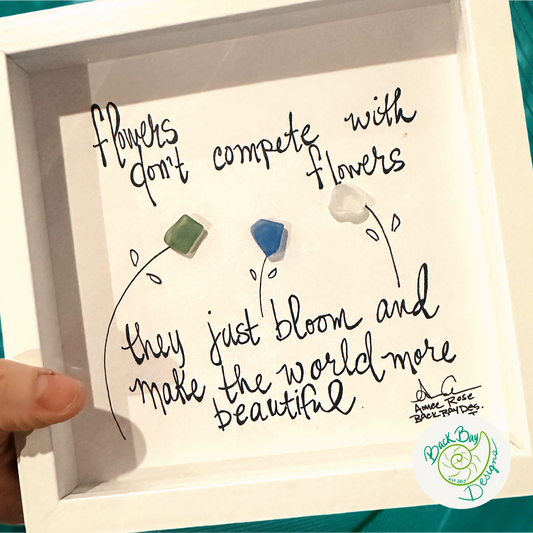 flowers
don't compete with
flowers
they just bloom and
make the world more
beautiful.
Aimee Rose
BACK BAY DES.
Back Bay
EST 2013
Designs